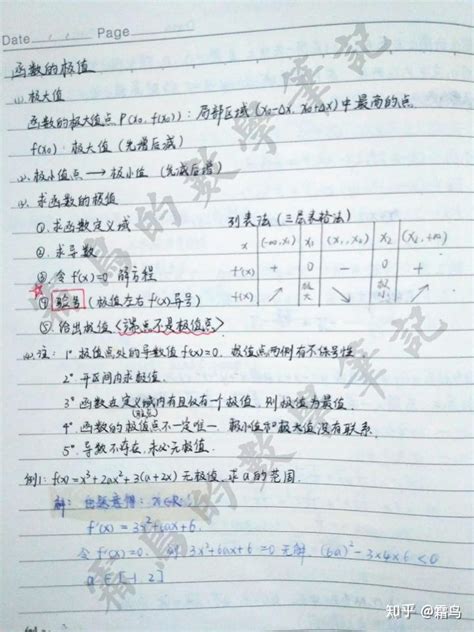 Date Page
函数的极值
(1). 极大值
函数的极大值点 P(x₀, f(x₀)): 局部区域 (x₀-Δx, x₀+Δx) 中最高的点
f(x₀): 极大值 (先增后减)
(2). 极小值点 → 极小值 (先减后增)
(3). 求函数的极值
①. 求函数定义域 列表法 (三层表格法)
②. 求导数 x (-∞, x₁) x₁ (x₁, x₂) x₂ (x₂, +∞)
③. 令 f'(x)=0 解方程 f'(x) + 0 - 0 +
④ 验号 (极值左右 f'(x)异号) f(x) ↗ 极大 ↘ 极小 ↗
⑤ 给出极值 (端点不是极值点)
(4). 注: 1° 极值点处的导数值 f'(x)=0. 极值点两侧有不保号性
2° 开区间内求极值.
3° 函数在定义域内有且仅有一个极值, 则极值为最值.
4° 函数的极值点不一定唯一 极小值和极大值没有联系.
5° 导数不存在, 未必无极值.
例1: f(x)=x³+2ax²+3(a+2x) 无极值, 求 a 的范围.
解: 由题意得: x∈R
f'(x) = 3x²+6ax+6.
令 f'(x)=0. 则 3x²+6ax+6=0 无解, (6a)²-3×4×6<0
a∈[-1, 2]
霜鸟的數學筆記
霜鸟的數學筆記
知乎 @霜鸟